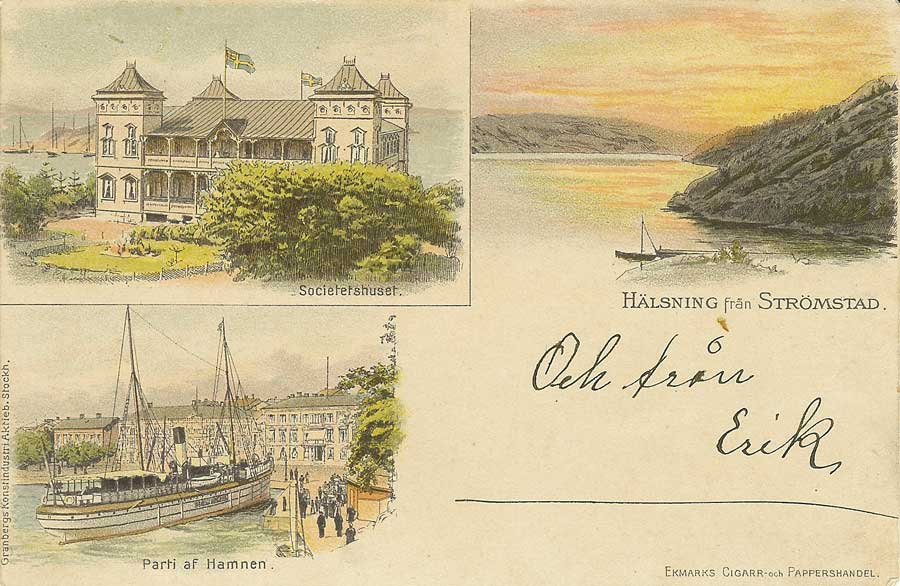 Societetshuset.
HÄLSNING från STRÖMSTAD.
Och från
Erik
Granbergs Konstindustri Aktieb. Stockh.
Parti af Hamnen.
EKMARKS CIGARR- och PAPPERSHANDEL.